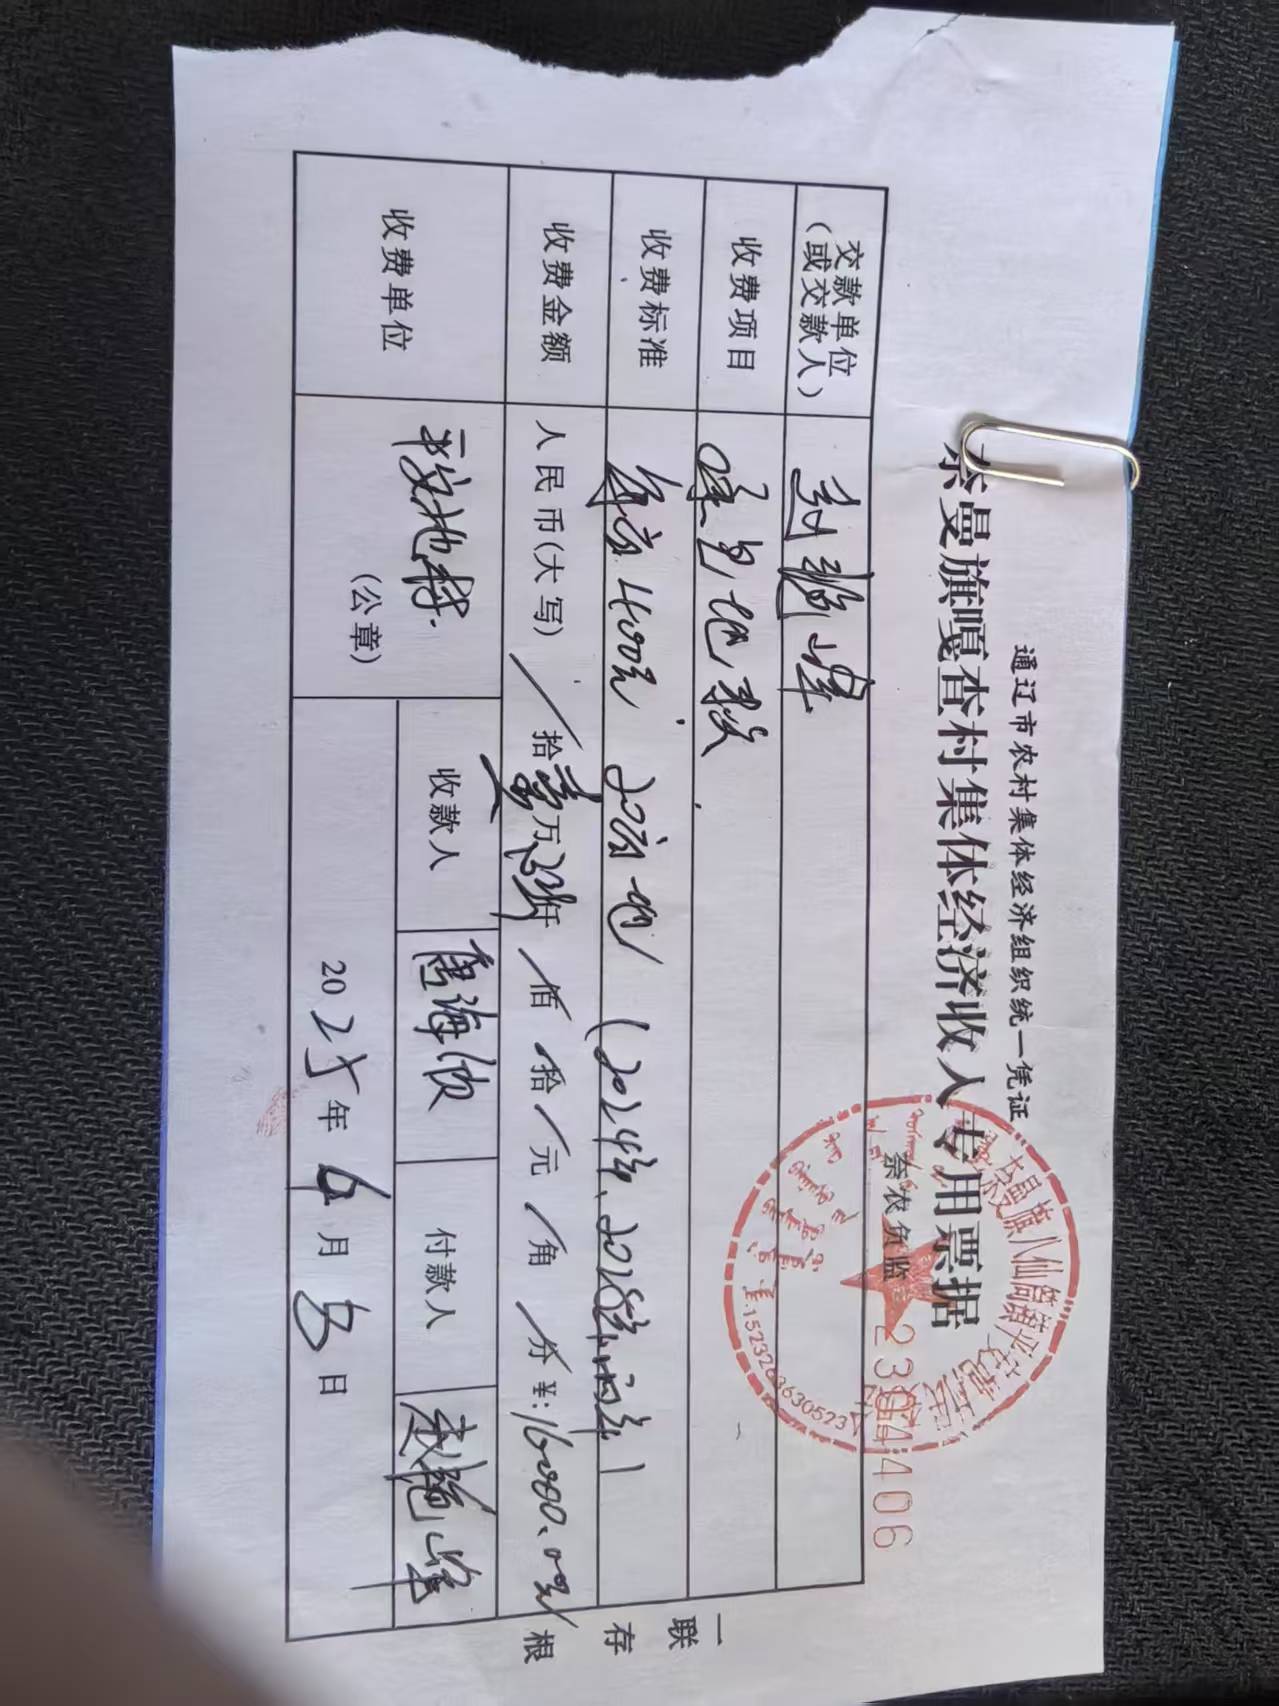 通辽市农村集体经济组织统一凭证
奈曼旗嘎查村集体经济收入专用票据
奈农负监 2304406
奈曼旗八仙筒镇平安地嘎查
1523263630523
交款单位
(或交款人)
赵艳峰
收费项目
地款
收费标准
每亩400元 20亩地 (2024年、2025年两年)
收费金额
人民币(大写) / 拾 壹 万 陆 仟 / 佰 / 拾 / 元 / 角 / 分 ¥:16000.00元
收费单位
平安地村
(公章)
收款人
海
付款人
赵艳峰
2025年 6月 日
一联 存根